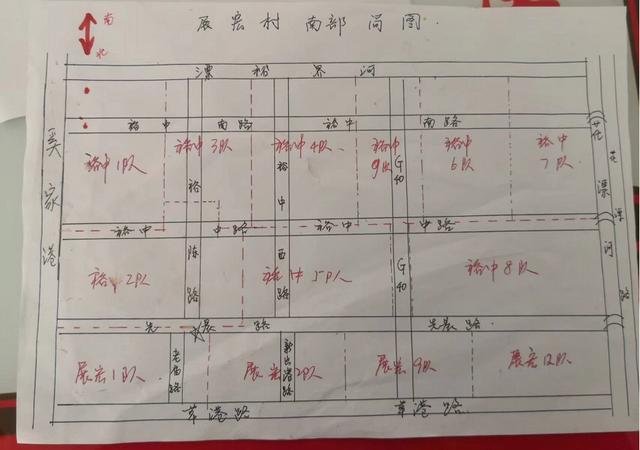 南
展宏村南部简图
北
漂裕界河
裕中南路 裕中南路
吴家港
裕中1队 裕中3队 裕中4队 裕中9队 G40 裕中6队 裕中7队
裕中路
裕中中路 裕中中路
陈路 西路 G40
裕中2队 裕中5队 裕中8队
漂河
路
先晨路 先晨路
展宏1队 老宿路 展宏2队 展宏9队 展宏12队
草港路 草港路